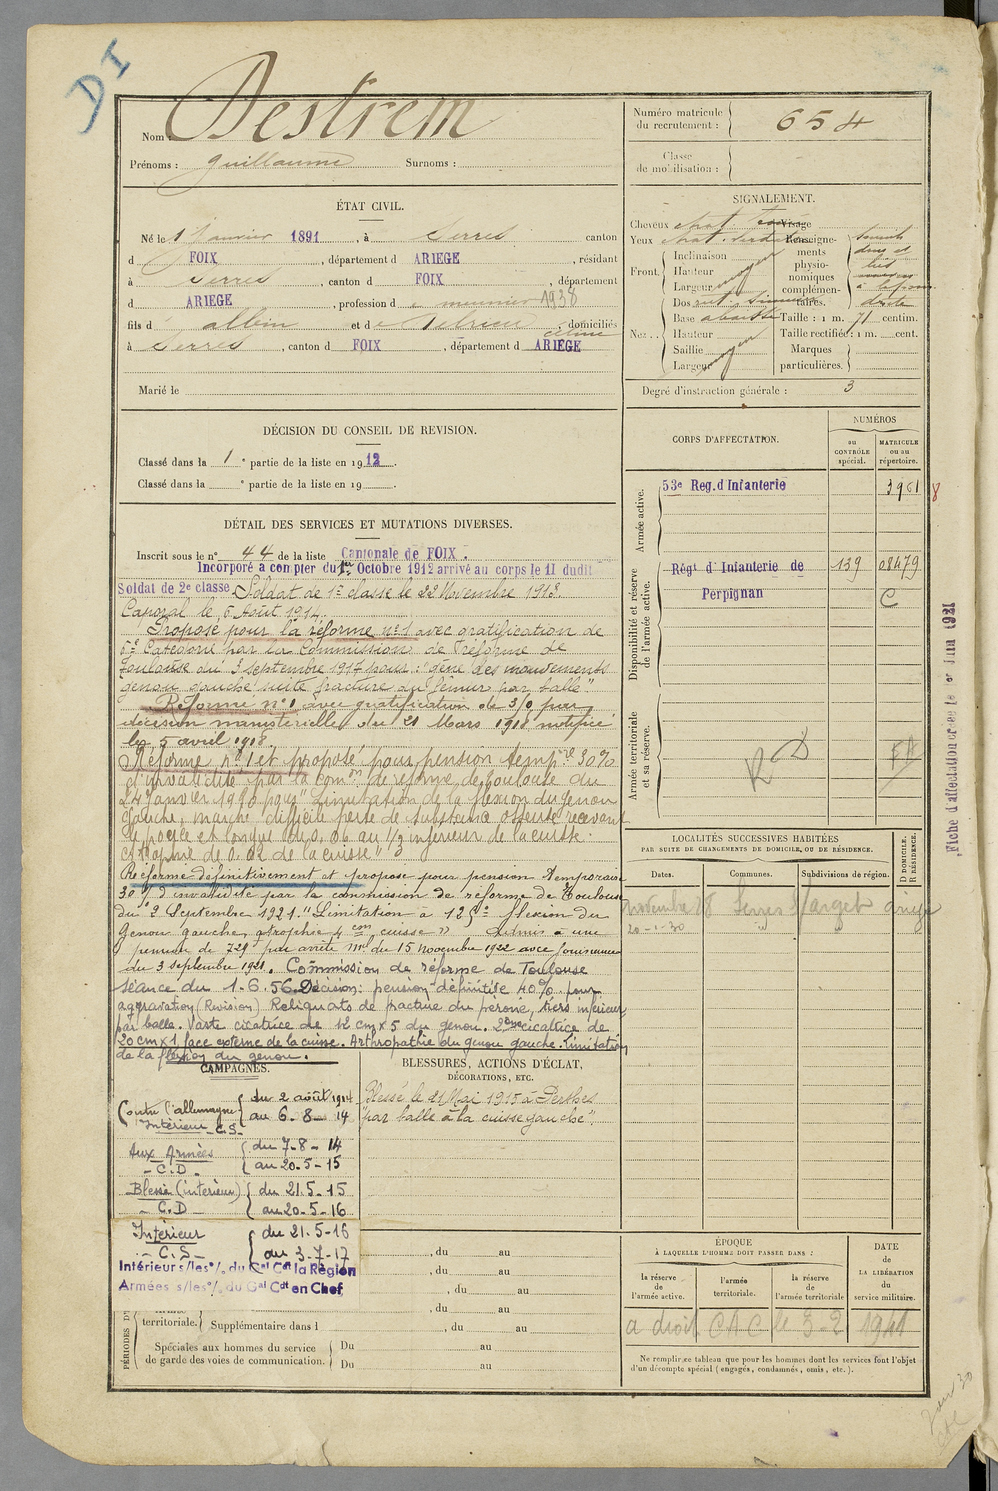 DI
Nom : Destrem
Prénoms : Guillaume Surnoms :
Numéro matricule du recrutement : 654
Classe de mobilisation :
ÉTAT CIVIL.
Né le 1 Janvier 1891, à Serres canton
d FOIX, département d ARIEGE, résidant
à Serres, canton d FOIX, département
d ARIEGE, profession d meunier 1938
fils d Albin et d , domiciliés
à Serres, canton d FOIX, département d ARIEGE
Marié le
SIGNALEMENT.
Cheveux chat Visage
Yeux Renseigne-
ments
physio-
nomiques
complémen-
taires.
Front. Inclinaison
Hauteur
Largeur moyen
Nez.. Dos
Base abaissée Taille : 1 m. 71 centim.
Hauteur Taille rectifiée : 1 m. cent.
Saillie Marques
Largeur moyen particulières.
Degré d'instruction générale : 3
DÉCISION DU CONSEIL DE REVISION.
Classé dans la 1e partie de la liste en 1912.
Classé dans la e partie de la liste en 19 .
DÉTAIL DES SERVICES ET MUTATIONS DIVERSES.
Inscrit sous le n° 44 de la liste Cantonale de FOIX.
Incorporé a compter du 1er Octobre 1912 arrivé au corps le 11 dudit
Soldat de 2e classe. Soldat de 1re classe le 22 Novembre 1913
Caporal le 6 Août 1914.
Proposé pour la réforme n°1 avec gratification de
Catégorie par la Commission de Réforme de
Toulouse du 3 septembre 1917 pour : "gêne des mouvements
genou gauche suite fracture du fémur par balle".
Réformé n°1 avec gratification de 30% par
décision ministérielle du 21 Mars 1918 notifiée
le 5 avril 1918.
Réformé n°1 et proposé pour pension temp.re 30%
d'invalidité par la com.on de réforme de Toulouse du
24 janvier 1920 pour "Limitation de la flexion du genou
gauche, marche difficile perte de substance osseuse recevant
le pouce et longue de 0,06 au 1/3 inférieur de la cuisse.
atrophie de 0.02 de la cuisse"
Réformé définitivement et proposé pour pension temporaire
30% d'invalidité par la commission de réforme de Toulouse
du 2 Septembre 1921. "Limitation à flexion du
Genou gauche, atrophie 4 cm cuisse" Admis à une
pension de 729f par arrêté Mel du 15 Novembre 1922 avec jouissance
du 3 septembre 1921. Commission de réforme de Toulouse
séance du 1-6.56. Décision : pension définitive 40% pour
aggravation (Revision) Reliquats de fracture du péroné, tiers inférieur
par balle. Vaste cicatrice de 12 cm x 5 du genou. 2ème cicatrice de
20 cm x 1 face externe de la cuisse. Arthropathie du genou gauche. limitation
de la flexion du genou.
CORPS D'AFFECTATION.
NUMÉROS
au CONTRÔLE spécial.
MATRICULE ou au répertoire.
Armée active.
53e Reg. d'Infanterie 3961 8
Disponibilité et réserve de l'armée active.
Régt d'Infanterie de 139 08479
Perpignan C
Armée territoriale et sa réserve.
RD
Fiche d'affectation créée le 1er Juin 1921
LOCALITÉS SUCCESSIVES HABITÉES
PAR SUITE DE CHANGEMENTS DE DOMICILE OU DE RÉSIDENCE.
Dates. Communes. Subdivisions de région. D DOMICILE. R RÉSIDENCE.
novembre 28 Serres s/arget ariège
20-1-30 "
CAMPAGNES.
Contre l'allemagne du 2 août 1914
Intérieur C.S. au 6-8-14
Aux Armées du 7-8-14
- C.D - au 20-5-15
Blessé (intérieur) du 21.5-15
- C.D au 20-5-16
Intérieur du 21.5-16
- C.S - au 3-7-17
Intérieur s/les o/. du Gal Cdt la Région
Armées s/les o/. du Gal Cdt en Chef
BLESSURES, ACTIONS D'ÉCLAT, DÉCORATIONS, ETC.
Blessé le 21 Mai 1915 à Perthes
"par balle à la cuisse gauche".
PÉRIODES D'
, du au
, du au
, du au
, du au
territoriale. Supplémentaire dans l , du au
Spéciales aux hommes du service Du au
de garde des voies de communication. Du au
ÉPOQUE
À LAQUELLE L'HOMME DOIT PASSER DANS :
la réserve de l'armée active.
l'armée territoriale.
la réserve de l'armée territoriale
DATE de LA LIBÉRATION du service militaire.
a droit CAC le 3-2 1941
Ne remplir ce tableau que pour les hommes dont les services font l'objet
d'un décompte spécial (engagés, condamnés, omis, etc.).